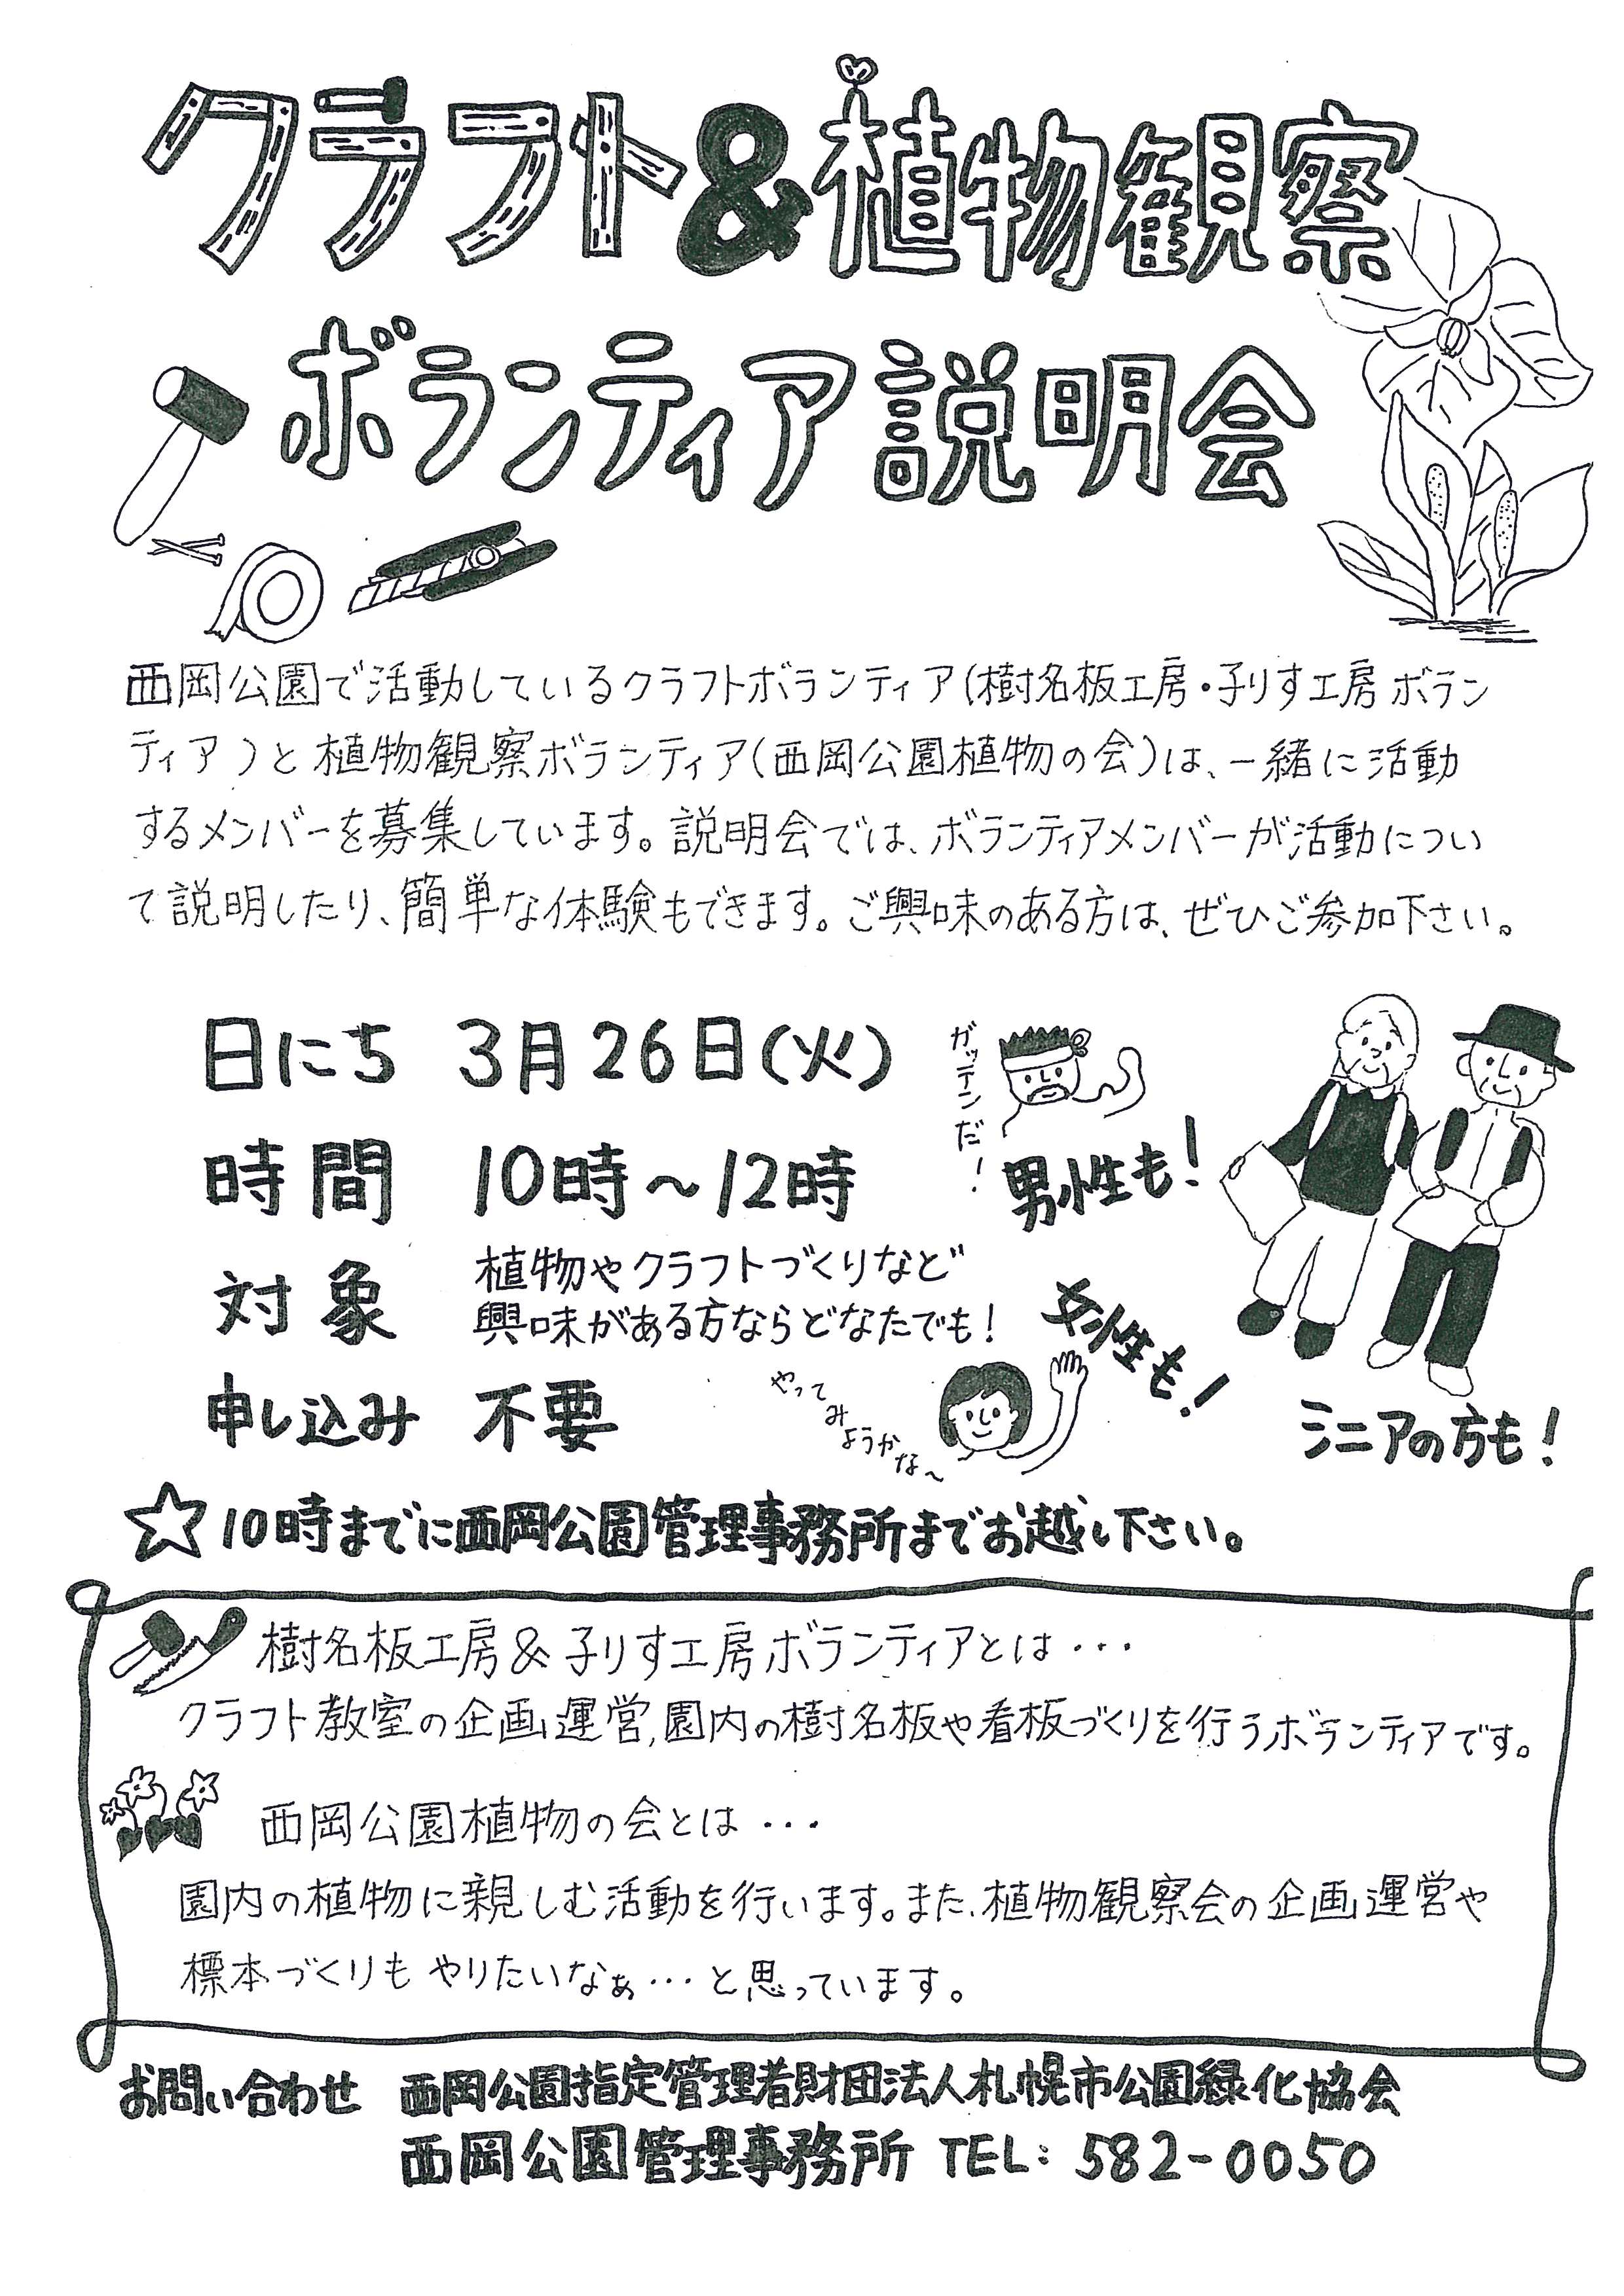 クラフト&植物観察
ボランティア説明会
西岡公園で活動しているクラフトボランティア(樹名板工房・子りす工房ボラン
ティア)と植物観察ボランティア(西岡公園植物の会)は、一緒に活動
するメンバーを募集しています。説明会では、ボランティアメンバーが活動につい
て説明したり、簡単な体験もできます。ご興味のある方は、ぜひご参加下さい。
日にち 3月26日(火)
ガッテンだ!
男性も!
時間 10時~12時
対象 植物やクラフトづくりなど
興味がある方ならどなたでも!
女性も!
申し込み 不要
やって
み
ようか
な~
シニアの方も!
☆10時までに西岡公園管理事務所までお越し下さい。
樹名板工房&子りす工房ボランティアとは・・・
クラフト教室の企画運営,園内の樹名板や看板づくりを行うボランティアです。
西岡公園植物の会とは・・・
園内の植物に親しむ活動を行います。また、植物観察会の企画運営や
標本づくりもやりたいなぁ・・・と思っています。
お問い合わせ 西岡公園指定管理者財団法人札幌市公園緑化協会
西岡公園管理事務所 TEL: 582-0050